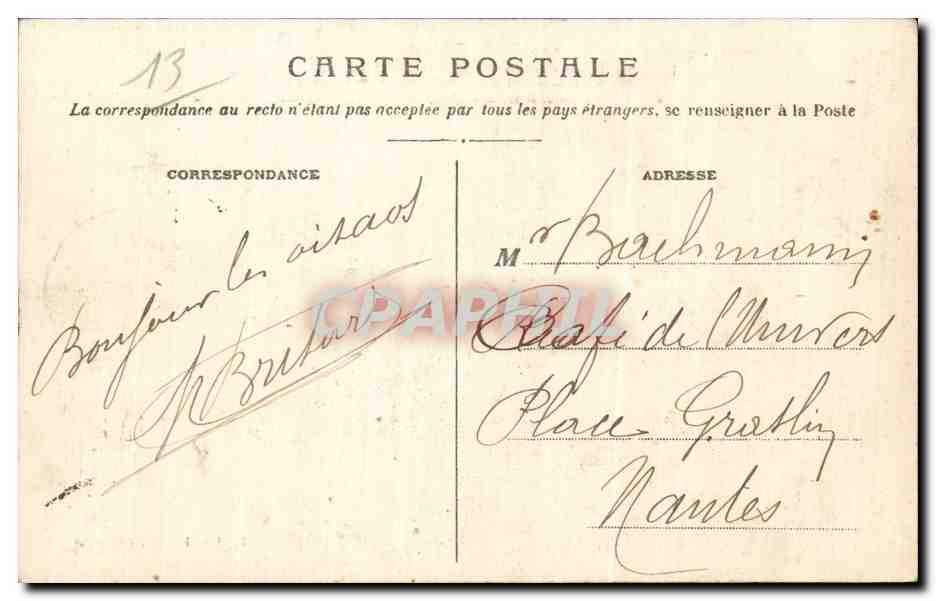 13
CARTE POSTALE
La correspondance au recto n'étant pas acceptée par tous les pays étrangers, se renseigner à la Poste
CORRESPONDANCE
Bonjour les oisaos
ADRESSE
Mr Bachmann
Café de l'Univers
Place Graslin
Nantes
CPAPHIL